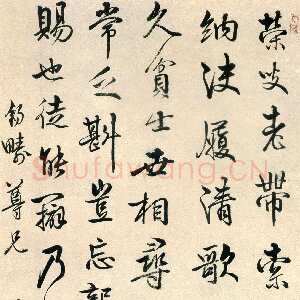 榮叟老帶索
納決履清歌
久貧士世相尋
常乏斟豈忘
賜也徒能辯乃
錫疇尊兄
Shufawang.CN